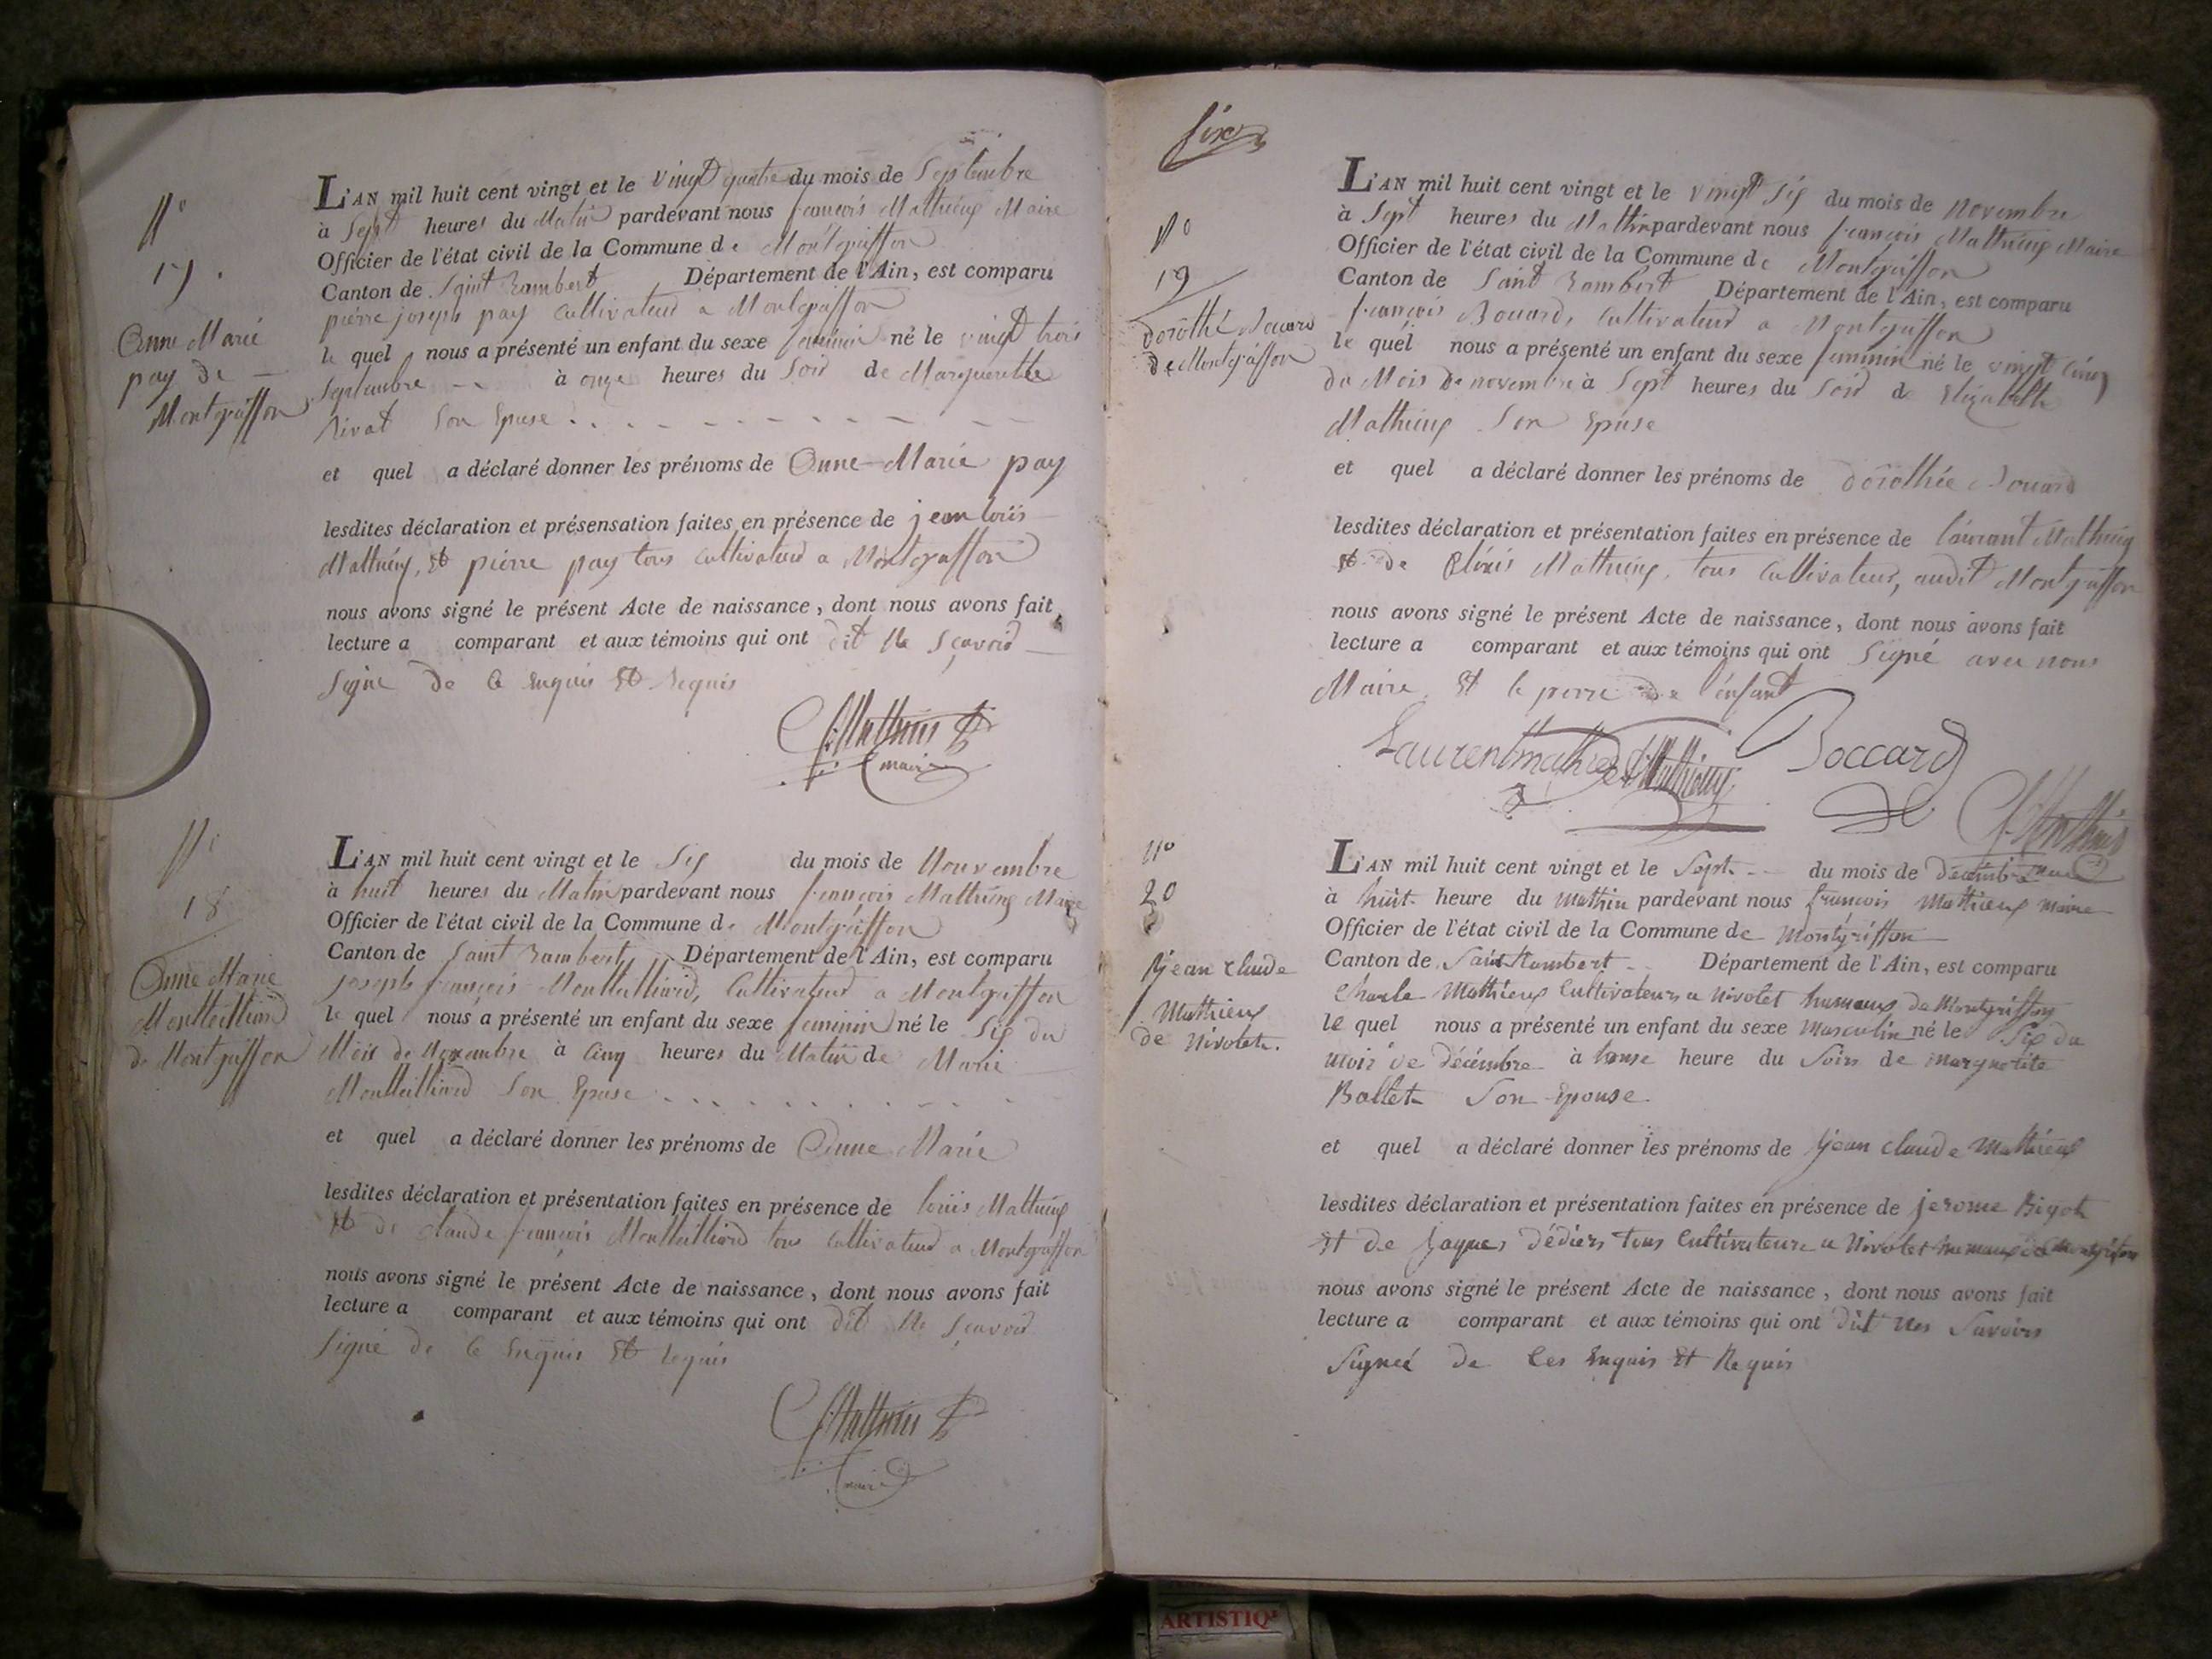 N°
17.
Anne Marie
pay de
Montgriffon
L'AN mil huit cent vingt et le vingt quatre du mois de Septembre
à Sept heures du Matin pardevant nous françois Mathieux Maire
Officier de l'état civil de la Commune de Montgriffon
Canton de Saint Rambert Département de l'Ain, est comparu
pierre joseph pay Cultivateur a Montgriffon
le quel nous a présenté un enfant du sexe feminin né le vingt trois
Septembre à onze heures du Soir de Marguerite
Rivat Son Epuse
et quel a déclaré donner les prénoms de Anne-Marie pay
lesdites déclaration et présensation faites en présence de jean louis
Mathieux, Et pierre pay tous Cultivateur a Montgriffon
nous avons signé le présent Acte de naissance, dont nous avons fait
lecture a comparant et aux témoins qui ont dit Ne Sçavoir
Signé de Ce Enquis Et Requis
f. Mathieu
maire
N°
18
Anne Marie
Montteilliard
de Montgriffon
L'AN mil huit cent vingt et le Six du mois de Nouvembre
à huit heures du Matin pardevant nous françois Mathieux Maire
Officier de l'état civil de la Commune de Montgriffon
Canton de Saint Rambert Département de l'Ain, est comparu
joseph françois Montteilliard, Cultivateur a Montgriffon
le quel nous a présenté un enfant du sexe feminin né le Six du
Mois de Novembre à Cinq heures du Matin de Marie
Montteilliard Son Epuse
et quel a déclaré donner les prénoms de Anne Marie
lesdites déclaration et présentation faites en présence de louis Mathieux
Et de claude françois Montteilliard tous Cultivateur a Montgriffon
nous avons signé le présent Acte de naissance, dont nous avons fait
lecture a comparant et aux témoins qui ont dit Ne Sçavoir
Signé de Ce Enquis Et Requis
f. Mathieu
maire
Six
N°
19
dorothé Bouard
de Montgriffon
L'AN mil huit cent vingt et le vingt Six du mois de Novembre
à Sept heures du Mathin pardevant nous françois Mathieux Maire
Officier de l'état civil de la Commune de Montgriffon
Canton de Saint Rambert Département de l'Ain, est comparu
françois Bouard, Cultivateur a Montgriffon
le quel nous a présenté un enfant du sexe feminin né le vingt Cinq
du Mois de novembre à Sept heures du Soir de Elizabeth
Mathieux Son Epuse
et quel a déclaré donner les prénoms de dorothée Bouard
lesdites déclaration et présentation faites en présence de laurant Mathieux
Et de Mathieux, tous Cultivateur, audit Montgriffon
nous avons signé le présent Acte de naissance, dont nous avons fait
lecture a comparant et aux témoins qui ont Signé avec nous
Maire, Et le perre de l'enfant
Laurent mathieu Mathieux Boccard
f. Mathieu
maire
N°
20
Jean Claude
Mathieux
de Nivolet.
L'AN mil huit cent vingt et le Sept du mois de décembre
à huit heure du mathin pardevant nous françois Mathieux maire
Officier de l'état civil de la Commune de Montgriffon
Canton de Saint Rambert Département de l'Ain, est comparu
Charle Mathieux Cultivateur a Nivolet humeaux de Montgriffon
le quel nous a présenté un enfant du sexe Masculin né le Six du
mois de décémbre à honse heure du Soirs de margueritte
Ballet Son Epouse
et quel a déclaré donner les prénoms de Jean Claude Mathieux
lesdites déclaration et présentation faites en présence de jerome Bigot
Et de Jaques dédiers tous Cultivateurs a Nivolet humeaux de Montgriffon
nous avons signé le présent Acte de naissance, dont nous avons fait
lecture a comparant et aux témoins qui ont dit Nes Savoirs
Signeé de Ces Enquis Et Requis
ARTISTIQ